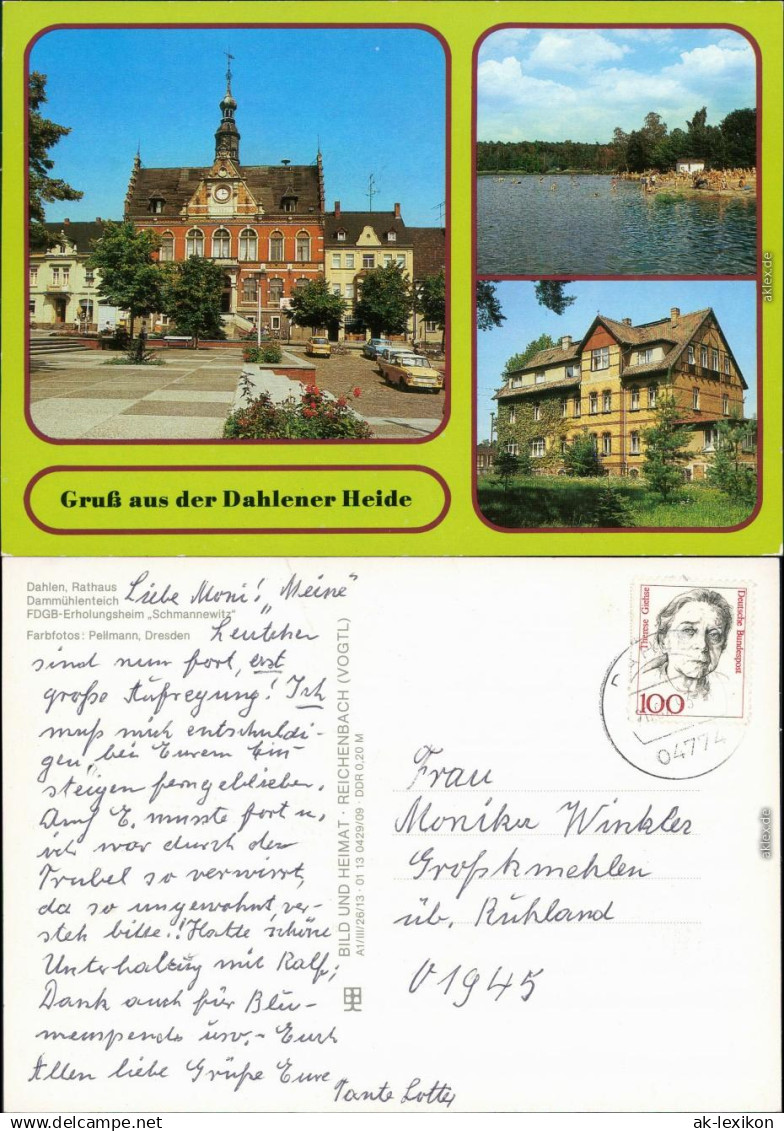 aklex.de
Gruß aus der Dahlener Heide
Dahlen, Rathaus
Dammühlenteich
FDGB-Erholungsheim „Schmannewitz"
Farbfotos: Pellmann, Dresden
Liebe Moni! „Meine"
Leutchen
sind nun fort, erst
große Aufregung! Ich
muß mich entschuldi-
gen, bei Eurem Ein-
steigen ferngeblieben.
Auf E. musste fort u.
ich war durch den
Trubel so verwirrt,
da so ungewohnt, ver-
steh bitte!! Hatte schöne
Unterhaltung mit Ralf;
Dank auch für Blu-
menspende usw. – Euch
Allen liebe Grüße Eure
Tante Lotte
BILD UND HEIMAT · REICHENBACH (VOGTL)
A1/III/26/13 · 01 13 0429/09 · DDR 0,20 M
Therese Giehse
Deutsche Bundespost
100
04774
Frau
Monika Winkler
Großkmehlen
üb. Ruhland
O 1945
aklex.de
ak-lexikon